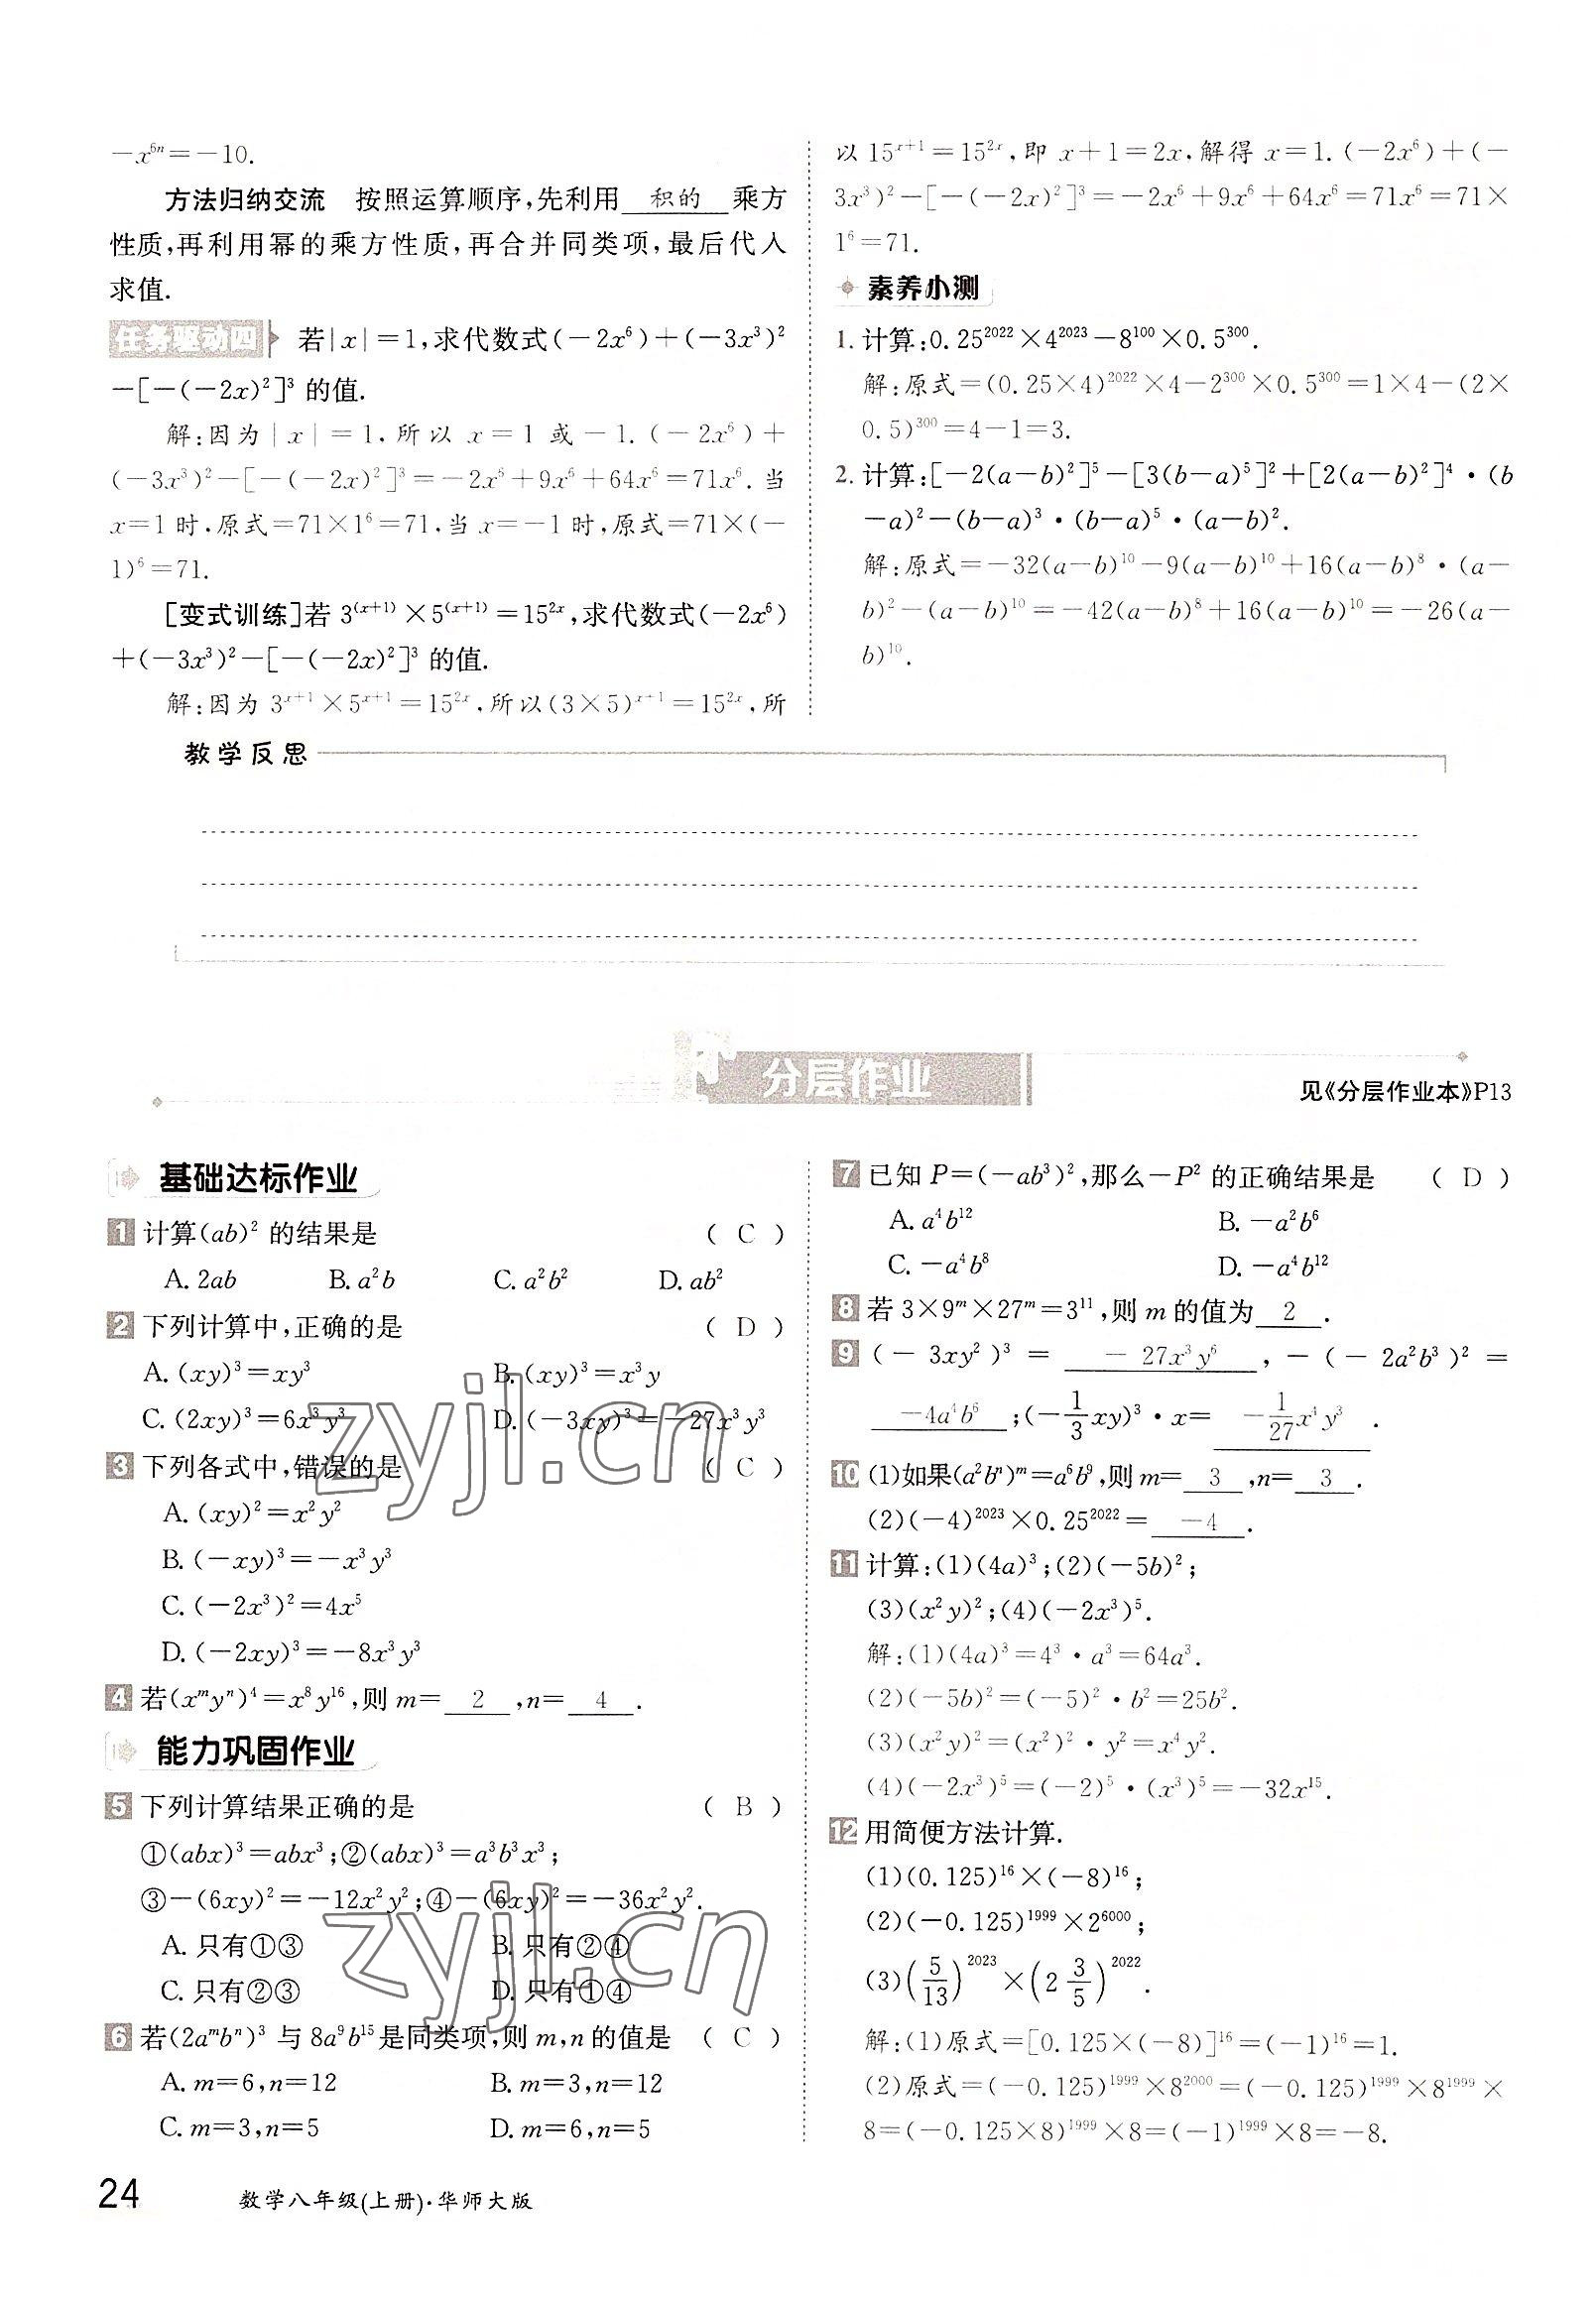 －x⁶ⁿ＝－10.
方法归纳交流　按照运算顺序,先利用 积的 乘方
性质,再利用幂的乘方性质,再合并同类项,最后代入
求值.
任务驱动四　若|x|＝1,求代数式(－2x⁶)＋(－3x³)²
－[－(－2x)²]³ 的值.
解:因为|x|＝1,所以 x＝1 或－1.(－2x⁶)＋
(－3x³)²－[－(－2x)²]³＝－2x⁶＋9x⁶＋64x⁶＝71x⁶.当
x＝1 时,原式＝71×1⁶＝71,当 x＝－1 时,原式＝71×(－
1)⁶＝71.
[变式训练]若 3⁽ˣ⁺¹⁾×5⁽ˣ⁺¹⁾＝15²ˣ,求代数式(－2x⁶)
＋(－3x³)²－[－(－2x)²]³ 的值.
解:因为 3ˣ⁺¹×5ˣ⁺¹＝15²ˣ,所以(3×5)ˣ⁺¹＝15²ˣ,所
以 15ˣ⁺¹＝15²ˣ,即 x＋1＝2x,解得 x＝1.(－2x⁶)＋(－
3x³)²－[－(－2x)²]³＝－2x⁶＋9x⁶＋64x⁶＝71x⁶＝71×
1⁶＝71.
素养小测
1. 计算:0.25²⁰²²×4²⁰²³－8¹⁰⁰×0.5³⁰⁰.
解:原式＝(0.25×4)²⁰²²×4－2³⁰⁰×0.5³⁰⁰＝1×4－(2×
0.5)³⁰⁰＝4－1＝3.
2. 计算:[－2(a－b)²]⁵－[3(b－a)⁵]²＋[2(a－b)²]⁴·(b
－a)²－(b－a)³·(b－a)⁵·(a－b)².
解:原式＝－32(a－b)¹⁰－9(a－b)¹⁰＋16(a－b)⁸·(a－
b)²－(a－b)¹⁰＝－42(a－b)⁸＋16(a－b)¹⁰＝－26(a－
b)¹⁰.
教学反思
分层作业
见《分层作业本》P13
基础达标作业
1 计算(ab)² 的结果是 ( C )
A. 2ab B. a²b C. a²b² D. ab²
2 下列计算中,正确的是 ( D )
A. (xy)³＝xy³ B. (xy)³＝x³y
C. (2xy)³＝6x³y³ D. (－3xy)³＝－27x³y³
3 下列各式中,错误的是 ( C )
A. (xy)²＝x²y²
B. (－xy)³＝－x³y³
C. (－2x³)²＝4x⁵
D. (－2xy)³＝－8x³y³
4 若(xᵐyⁿ)⁴＝x⁸y¹⁶,则 m＝ 2 ,n＝ 4 .
能力巩固作业
5 下列计算结果正确的是 ( B )
①(abx)³＝abx³;②(abx)³＝a³b³x³;
③－(6xy)²＝－12x²y²;④－(6xy)²＝－36x²y².
A. 只有①③ B. 只有②④
C. 只有②③ D. 只有①④
6 若(2aᵐbⁿ)³ 与 8a⁹b¹⁵是同类项,则 m,n 的值是 ( C )
A. m＝6,n＝12 B. m＝3,n＝12
C. m＝3,n＝5 D. m＝6,n＝5
7 已知 P＝(－ab³)²,那么－P² 的正确结果是 ( D )
A. a⁴b¹² B. －a²b⁶
C. －a⁴b⁸ D. －a⁴b¹²
8 若 3×9ᵐ×27ᵐ＝3¹¹,则 m 的值为 2 .
9 (－3xy²)³＝ －27x³y⁶ ,－(－2a²b³)²＝
－4a⁴b⁶ ;(－1/3xy)³·x＝ －1/27x⁴y³ .
10 (1)如果(a²bⁿ)ᵐ＝a⁶b⁹,则 m＝ 3 ,n＝ 3 .
(2)(－4)²⁰²³×0.25²⁰²²＝ －4 .
11 计算:(1)(4a)³;(2)(－5b)²;
(3)(x²y)²;(4)(－2x³)⁵.
解:(1)(4a)³＝4³·a³＝64a³.
(2)(－5b)²＝(－5)²·b²＝25b².
(3)(x²y)²＝(x²)²·y²＝x⁴y².
(4)(－2x³)⁵＝(－2)⁵·(x³)⁵＝－32x¹⁵.
12 用简便方法计算.
(1)(0.125)¹⁶×(－8)¹⁶;
(2)(－0.125)¹⁹⁹⁹×2⁶⁰⁰⁰;
(3)(5/13)²⁰²³×(2 3/5)²⁰²².
解:(1)原式＝[0.125×(－8)]¹⁶＝(－1)¹⁶＝1.
(2)原式＝(－0.125)¹⁹⁹⁹×8²⁰⁰⁰＝(－0.125)¹⁹⁹⁹×8¹⁹⁹⁹×
8＝(－0.125×8)¹⁹⁹⁹×8＝(－1)¹⁹⁹⁹×8＝－8.
24 数学八年级(上册)·华师大版
zyjl.cn
zyjl.cn